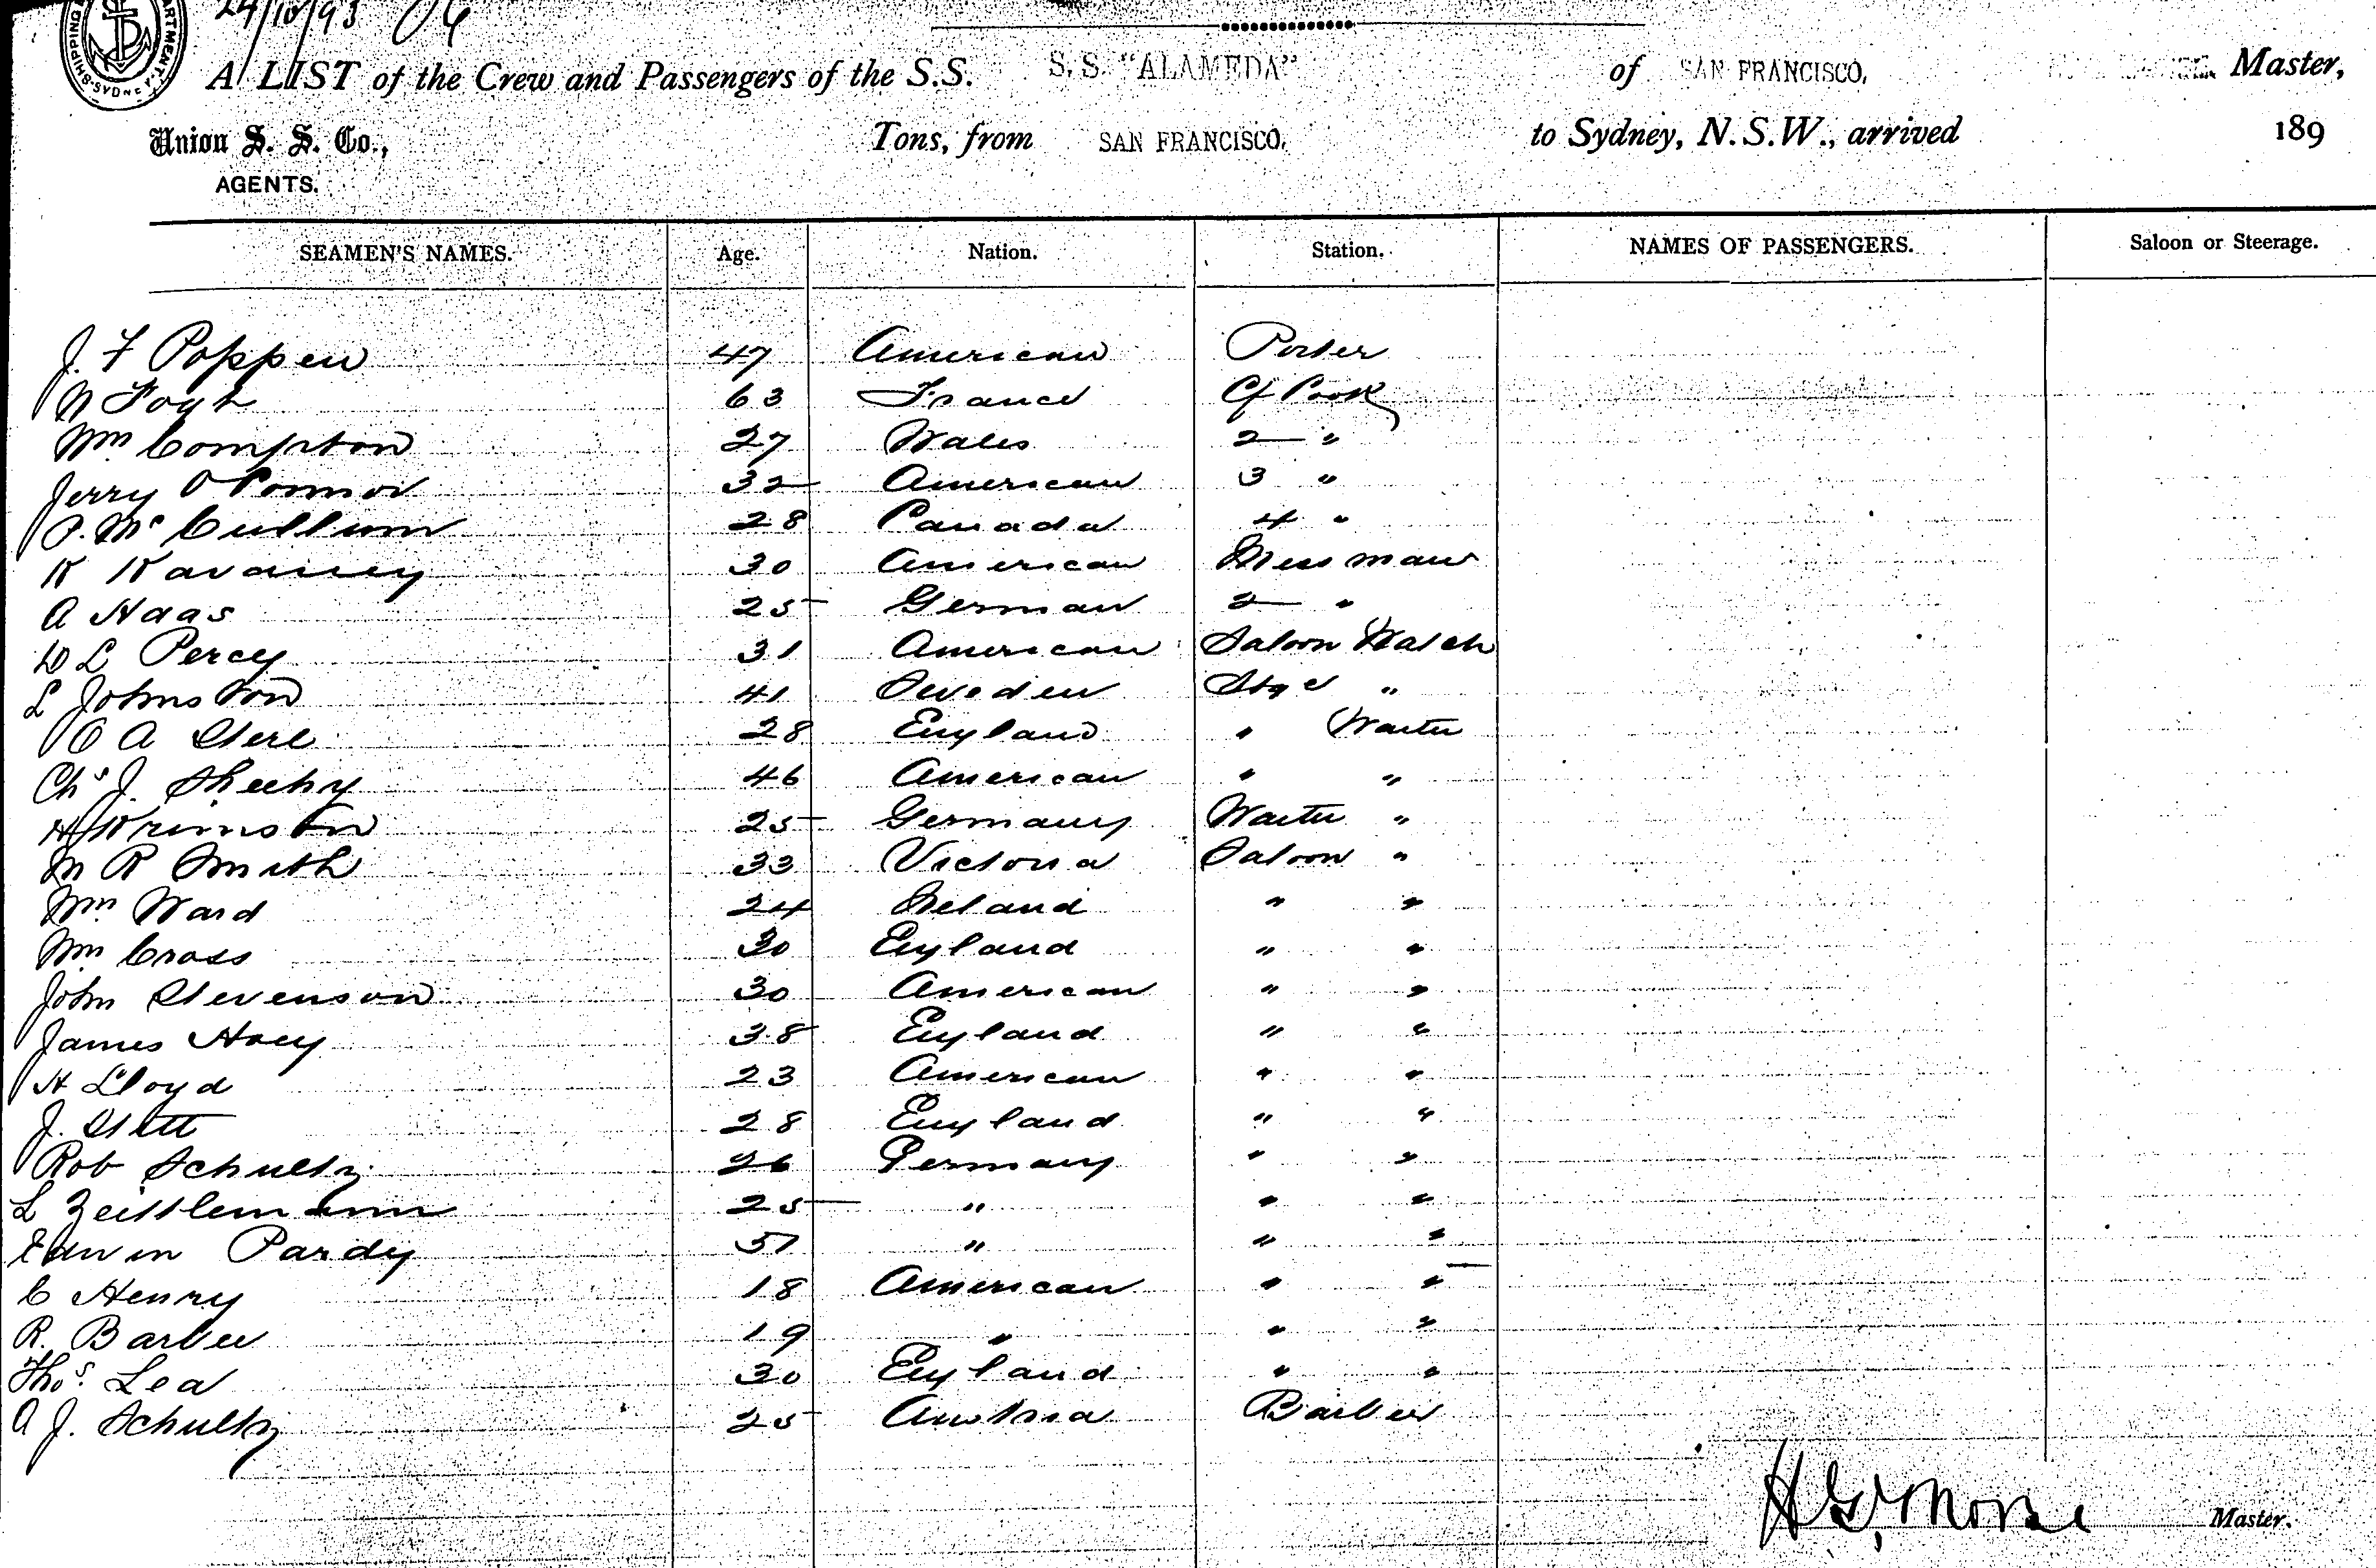 24/10/93
SHIPPING DEPARTMENT. SYDNEY
A LIST of the Crew and Passengers of the S.S. S.S. "ALAMEDA" of SAN FRANCISCO, Master,
Union S. S. Co., Tons, from SAN FRANCISCO, to Sydney, N.S.W., arrived 189
AGENTS.
SEAMEN'S NAMES. Age. Nation. Station. NAMES OF PASSENGERS. Saloon or Steerage.
J. F Poppen 47 American Porter
N Fogt 63 France Cf Cook
Wm Compton 27 Wales 2 "
Jerry O'Connor 32 American 3 "
P. Mc Cullum 28 Canada 4 "
K Kavaney 30 American Mess man
A Haas 25 German 2 "
L Percy 31 American Saloon Watch
L Johnston 41 Sweden Stge "
A Stere 28 England " Waiter
Chs J. Sheehy 46 American " "
H Krimston 25 Germany Waiter "
M R Smith 33 Victoria Saloon "
Wm Ward 24 Ireland " "
Wm Cross 30 England " "
John Stevenson 30 American " "
James Hoey 38 England " "
H Lloyd 23 American " "
J. Stett 28 England " "
Rob Schultz 26 Germany " "
L Zeittlemann 25 " " "
Edwin Pardy 31 " " "
C Henry 18 American " "
R. Barbee 19 " " "
Thos. Lea 30 England " "
A J. Schultz 25 Austria Barber
H G Morse Master.